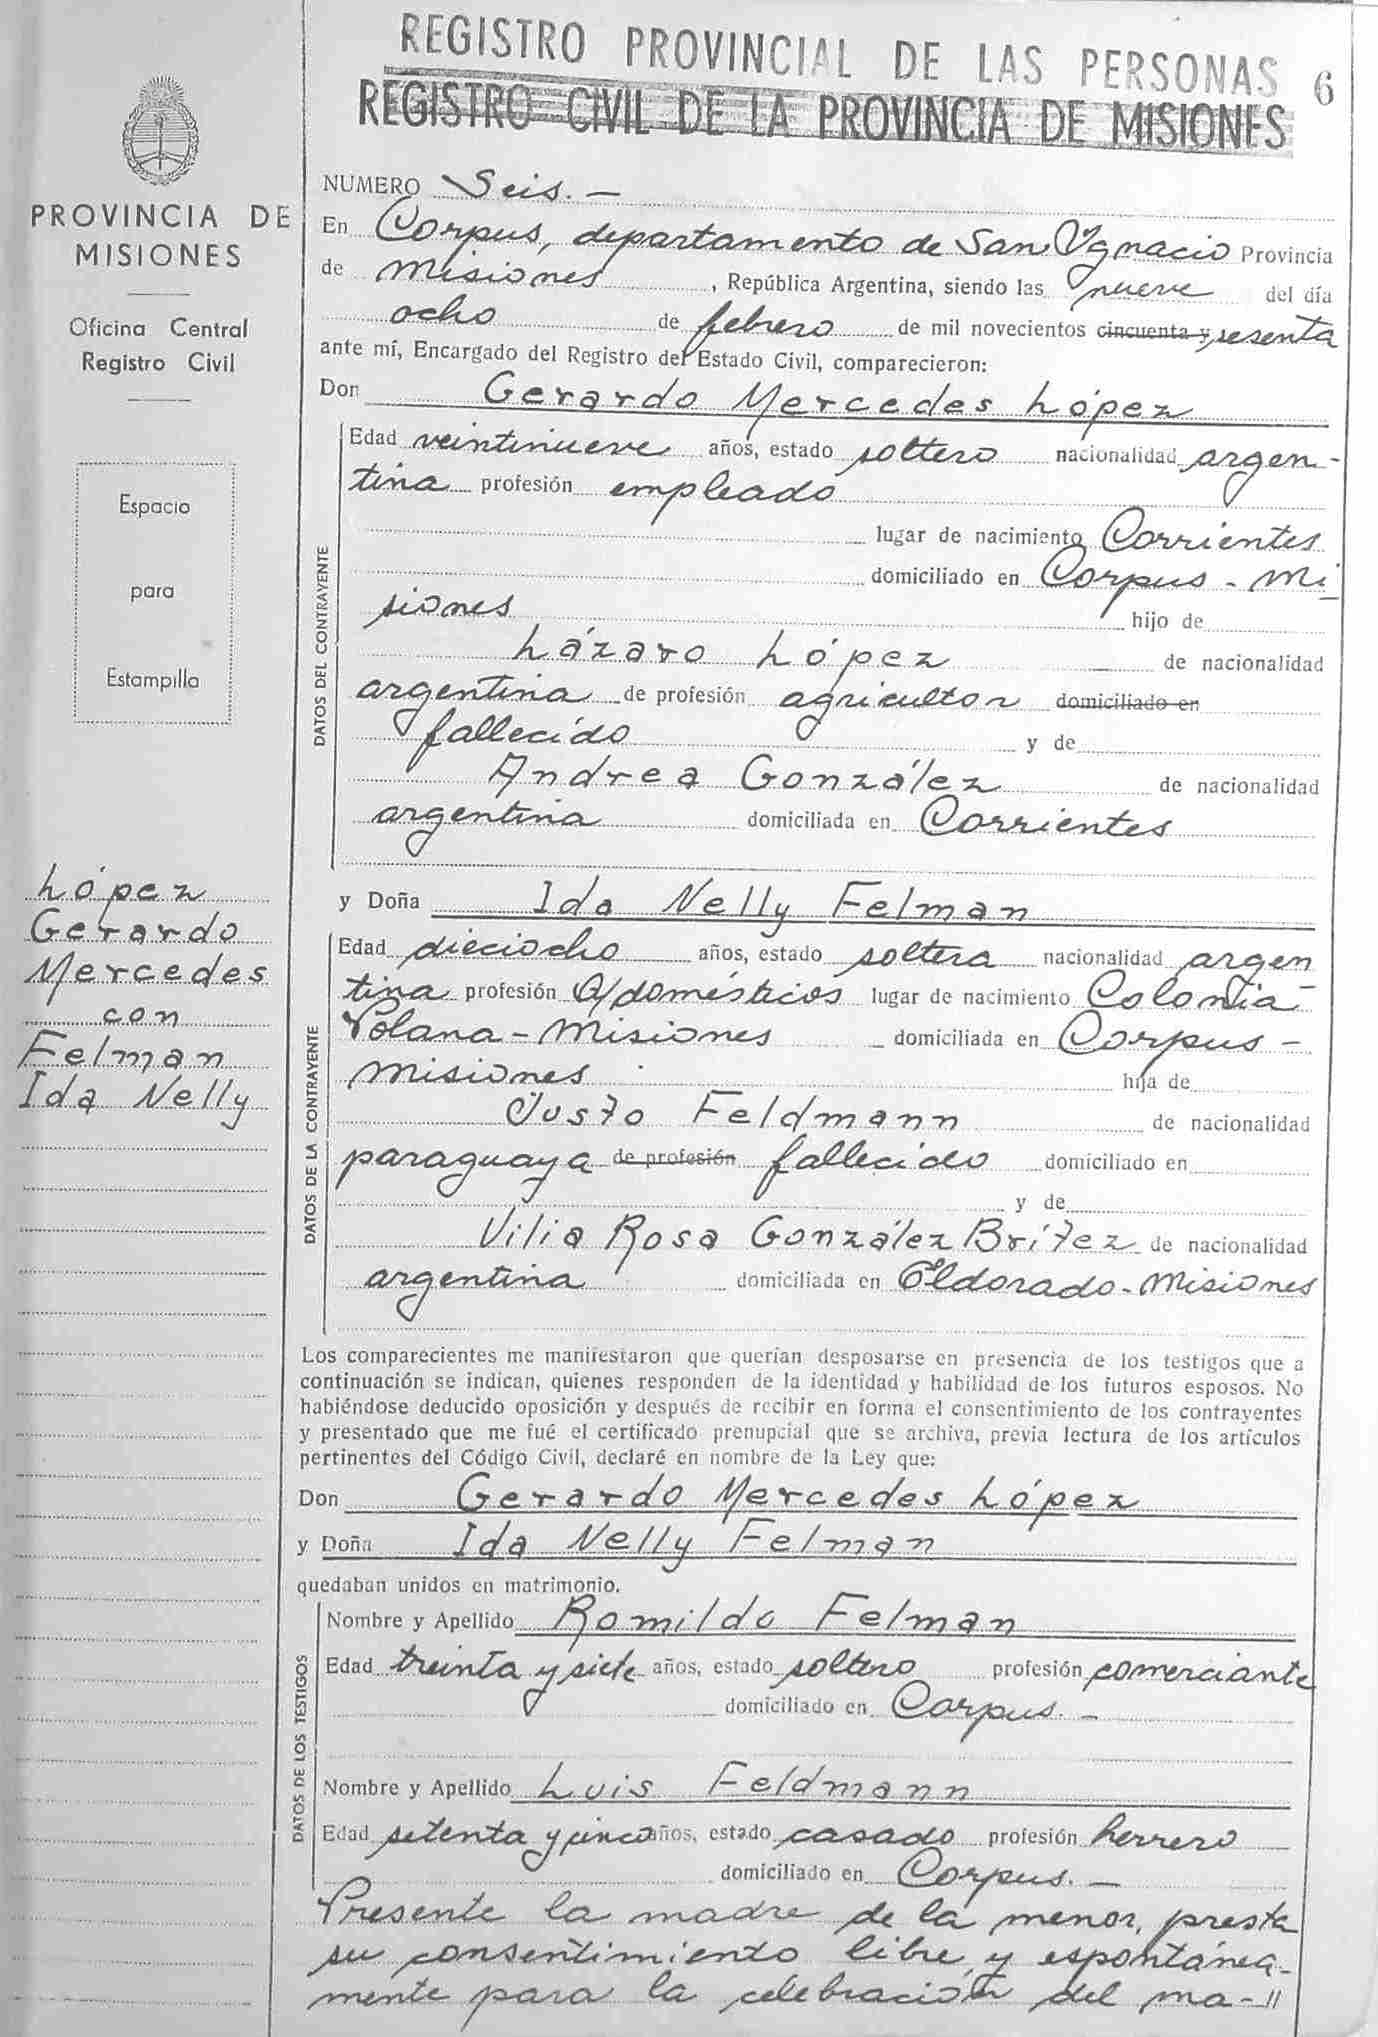 REGISTRO PROVINCIAL DE LAS PERSONAS 6
REGISTRO CIVIL DE LA PROVINCIA DE MISIONES
PROVINCIA DE
MISIONES
Oficina Central
Registro Civil
Espacio
para
Estampilla
López
Gerardo
Mercedes
con
Felman
Ida Nelly
NUMERO Seis.-
En Corpus, departamento de San Ygnacio Provincia
de Misiones, República Argentina, siendo las nueve del día
ocho de febrero de mil novecientos cincuenta y sesenta
ante mí, Encargado del Registro del Estado Civil, comparecieron:
Don Gerardo Mercedes López
DATOS DEL CONTRAYENTE
Edad veintinueve años, estado soltero nacionalidad argen-
tina profesión empleado
lugar de nacimiento Corrientes
domiciliado en Corpus - Mi
siones hijo de
Lázaro López de nacionalidad
argentina de profesión agricultor domiciliado en
fallecido y de
Andrea González de nacionalidad
argentina domiciliada en Corrientes
y Doña Ida Nelly Felman
DATOS DE LA CONTRAYENTE
Edad dieciocho años, estado soltera nacionalidad argen
tina profesión Q/domésticos lugar de nacimiento Colonia
Polana - Misiones domiciliada en Corpus -
Misiones hija de
Justo Feldmann de nacionalidad
paraguaya de profesión fallecido domiciliado en
y de
Vilia Rosa González Brítez de nacionalidad
argentina domiciliada en Eldorado - Misiones
Los comparecientes me manifestaron que querían desposarse en presencia de los testigos que a
continuación se indican, quienes responden de la identidad y habilidad de los futuros esposos. No
habiéndose deducido oposición y después de recibir en forma el consentimiento de los contrayentes
y presentado que me fué el certificado prenupcial que se archiva, previa lectura de los artículos
pertinentes del Código Civil, declaré en nombre de la Ley que:
Don Gerardo Mercedes López
y Doña Ida Nelly Felman
quedaban unidos en matrimonio.
DATOS DE LOS TESTIGOS
Nombre y Apellido Romildo Felman
Edad treinta y siete años, estado soltero profesión comerciante
domiciliado en Corpus.-
Nombre y Apellido Luis Feldmann
Edad setenta y cinco años, estado casado profesión herrero
domiciliado en Corpus.-
Presente la madre de la menor, presta
su consentimiento libre y espontánea-
mente para la celebración del ma-//